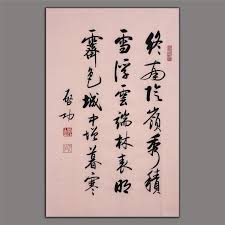 终南阴岭秀積
雪浮雲端林表明
霽色城中增暮寒
啓功